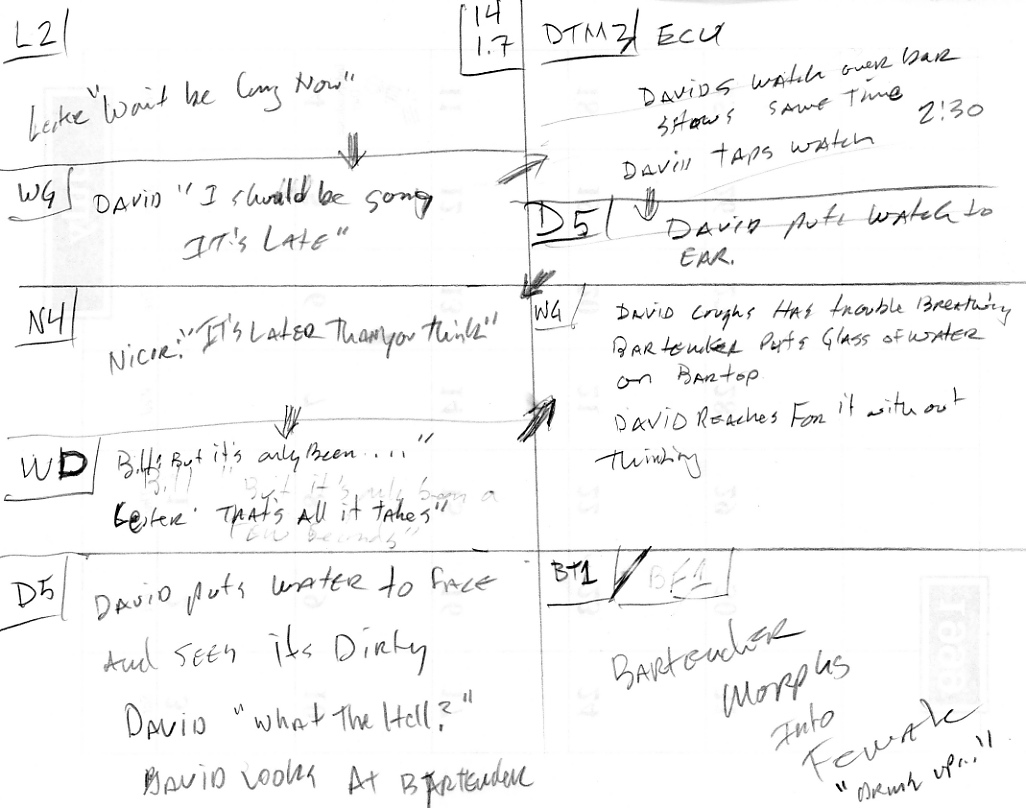 L2
Lester "Won't be long Now"
WG
DAVID "I should be going
IT'S LATE"
N4
Nicor: "IT'S LATER Than you think"
WD
Bill: But it's only Been ...."
Bill " But it's only been a
Lester THAT'S All it takes"
few seconds"
D5
DAVID puts WATER to FACE
And SEES its Dirty
DAVID "what The Hell?"
DAVID Looks At BARTENDER
14
1.7
DTM2 ECU
DAVIDS WATCH over bar
SHOWS SAME TIME
2:30
DAVID TAPS WATCH
D5
DAVID puts WATCH to
EAR.
WG
DAVID Coughs HAS trouble BREATHING
BARTENDER PUTS GLASS of WATER
on BARTOP
DAVID REACHES FOR it without
thinking
BT1
BF1
BARTENDER
MORPHS
Into
Female
"Drink up..."